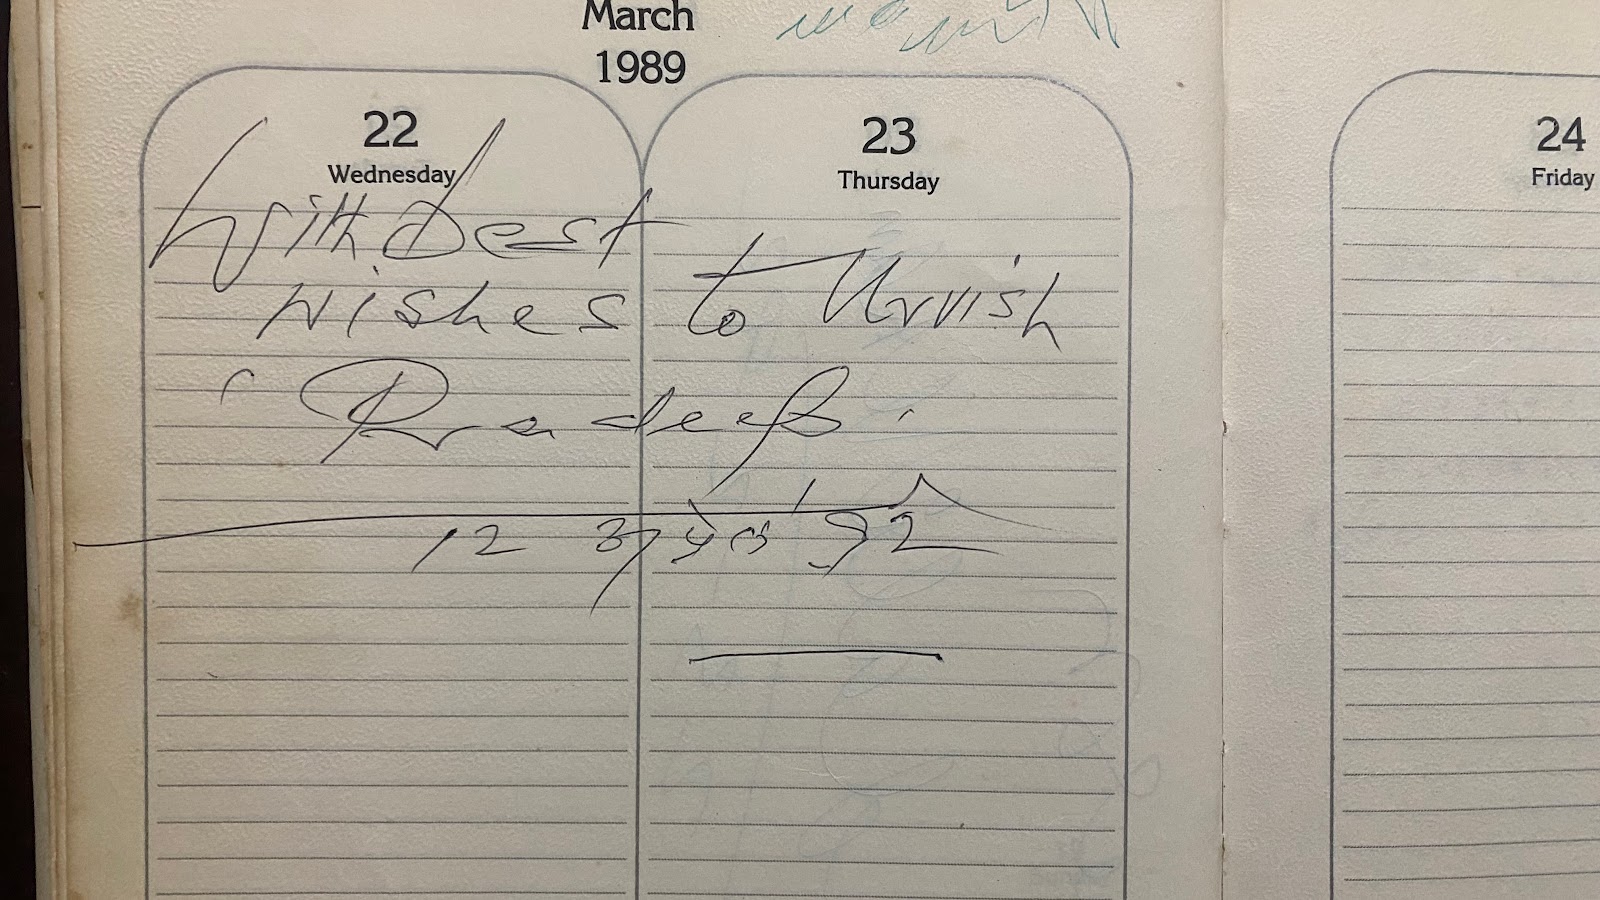 March
1989
22
Wednesday
23
Thursday
24
Friday
With best
wishes to Urvish
Pradeep
12
'92